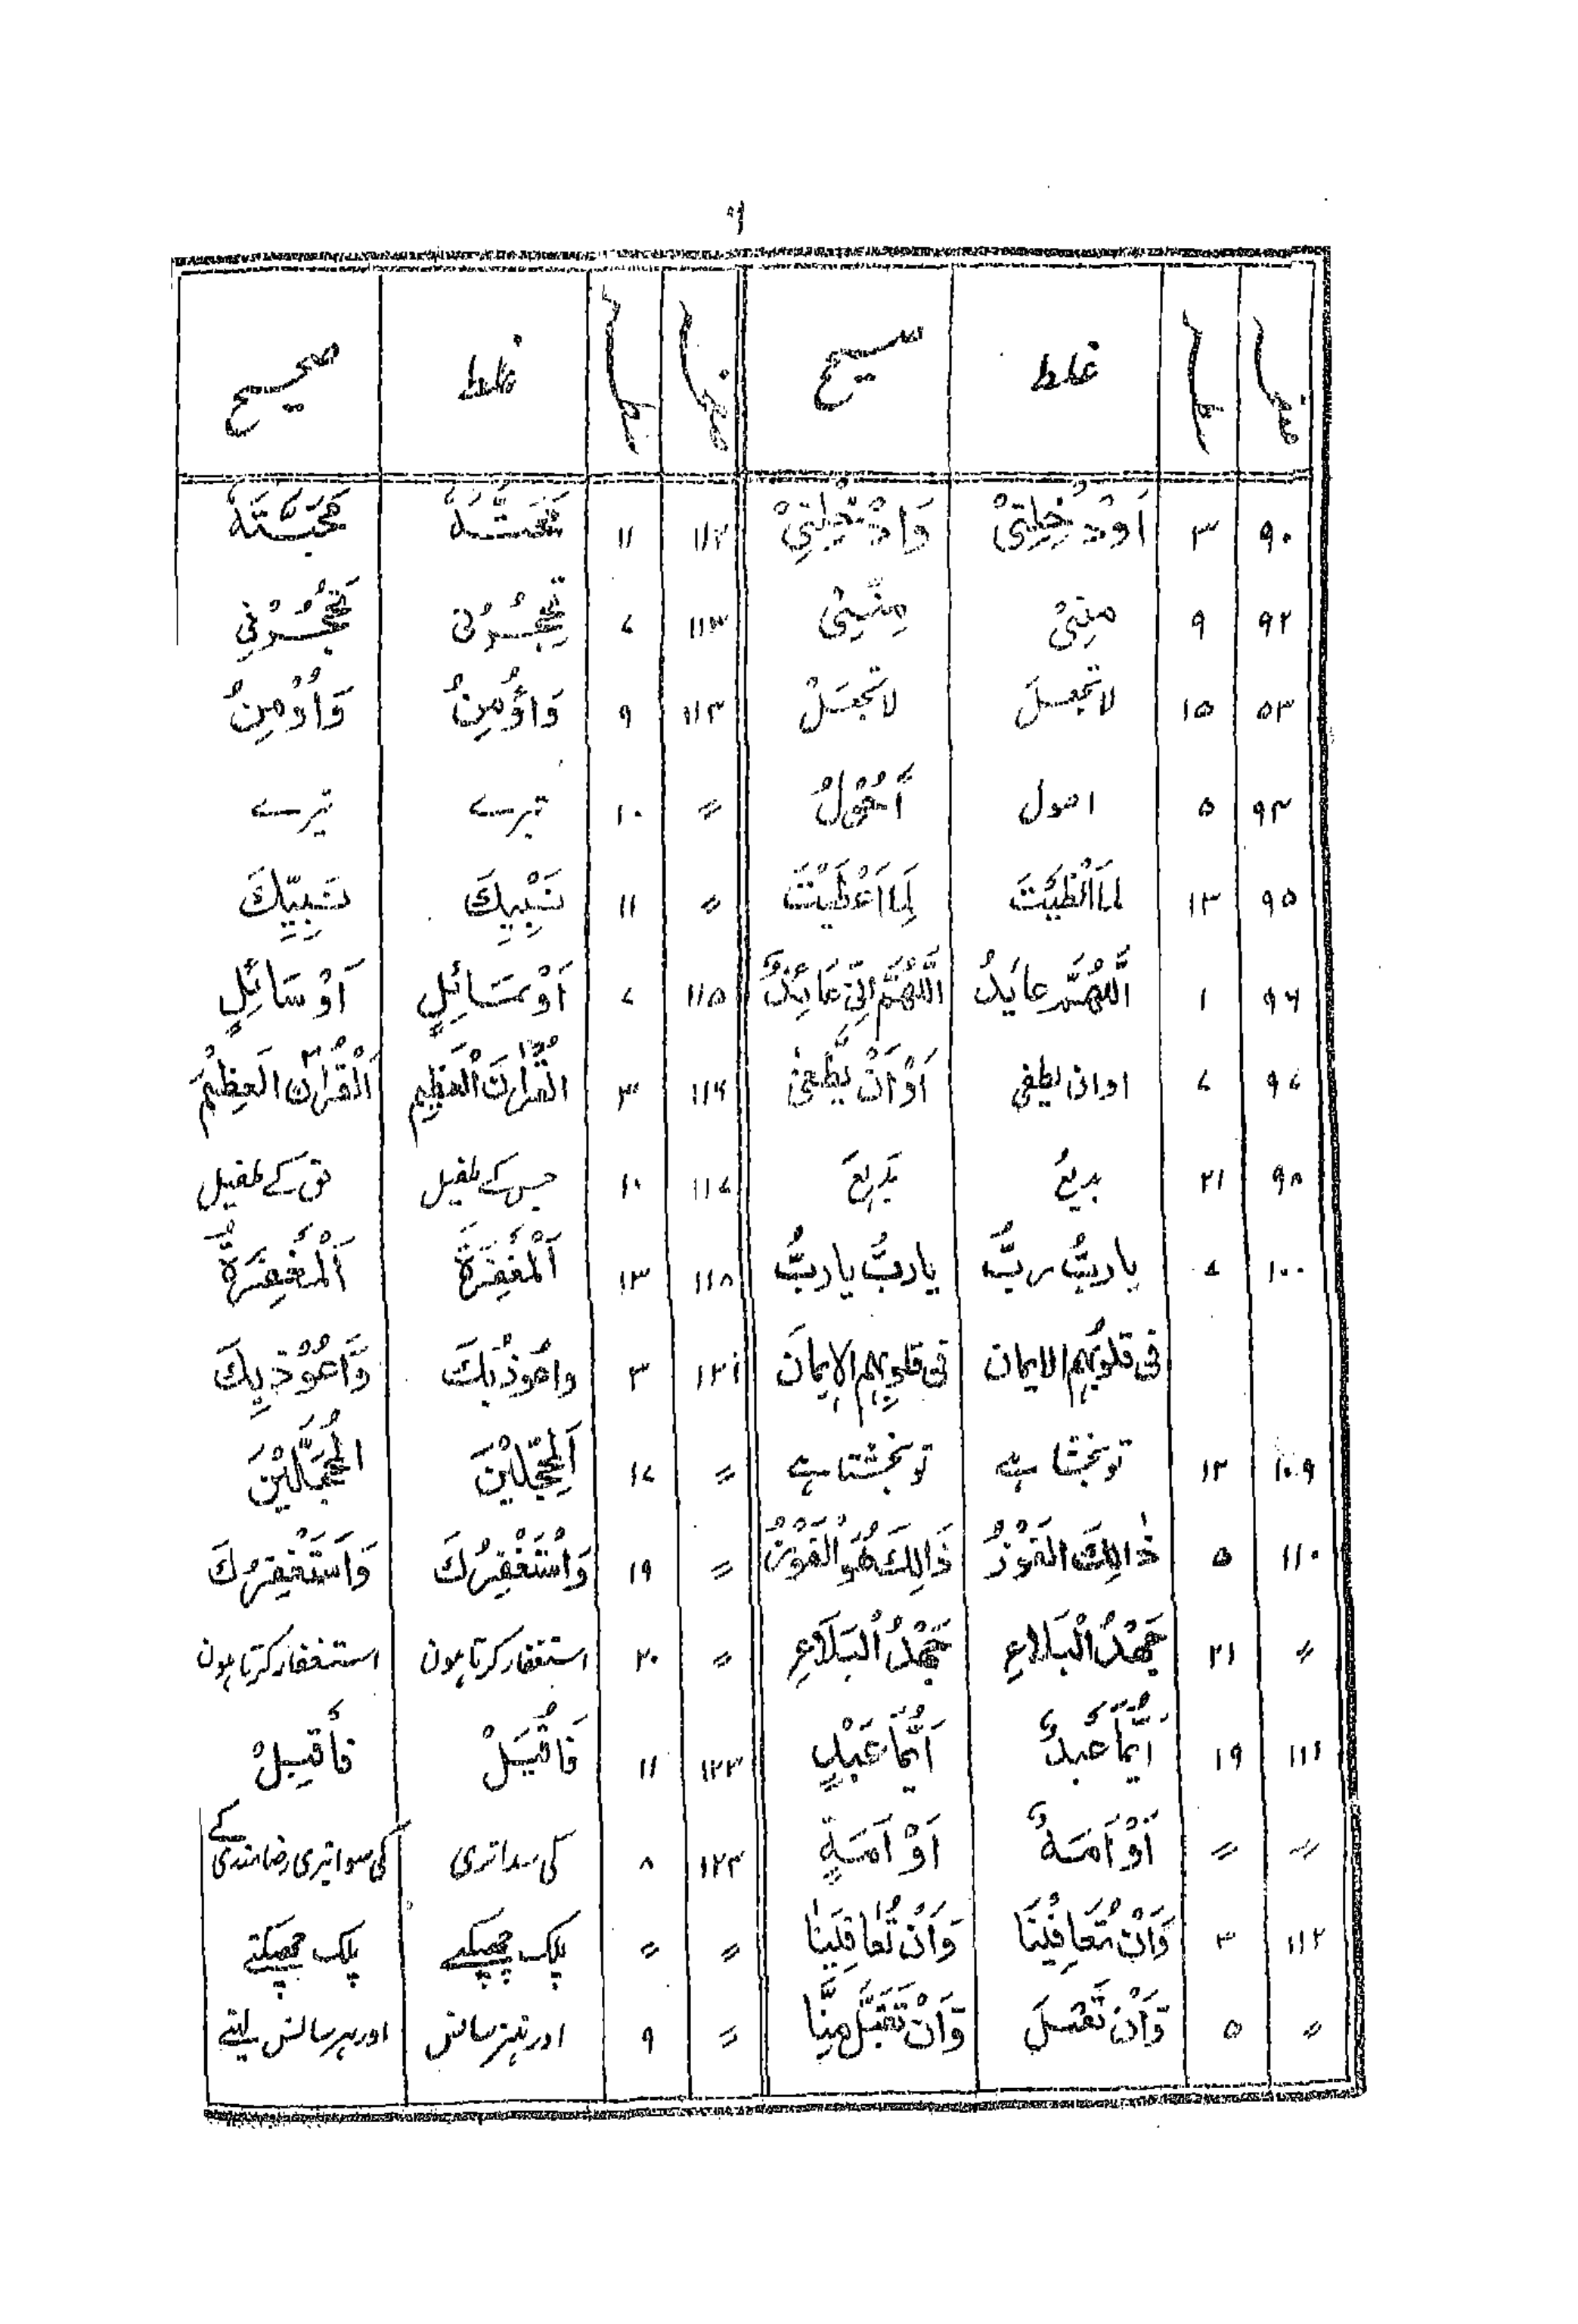 ۶
صفحہ سطر غلط صحیح صفحہ سطر غلط صحیح
۹۰ ۳ اَوْدُخِلِتیْ وَادْخِلِتیْ ۱۱۲ ۱۱ مُحَبَّتَهٗ
۹۲ ۹ مِنِیْ مِنِّیْ ۱۱۳ ۷ تَحْجُرْنِی
۵۳ ۱۵ لاتجعلَ لاتَجْعَلْ ۱۱۴ ۹ وَاؤُمِنُ وَاُوْمِنُ
۹۴ ۵ احول اَحُوْلُ 〃 ۱۰ تیرے
۹۵ ۱۳ لِمَا اَعْطَیْتَ 〃 ۱۱ نَبِیِّكَ
۹۶ ۱ اَللّٰهُمَّ عائذُ اَللّٰهُمَّ اِنِّیْ عَائِذٌ ۱۱۵ ۷ اَوْ سَائِلٍ
۹۷ ۷ اوان یطغی اَوْ اَنْ یَّطْغیٰ ۱۱۶ ۳ القُرْاٰنَ الْعَظِیمِ اَلْقُرْاٰنَ الْعَظِیْمَ
۹۸ ۲۱ بدیعُ بَدِیْعَ ۱۱۷ ۱۰ جس کے طفیل کے طفیل
۱۰۰ ۷ یا ربُّ ربُّ یا ربُّ یا ربُّ ۱۱۸ ۱۳ اَلْمَغْفِرَةَ اَلْمَغْفِرَةُ
فی قلوبُہم الایمان فی قلوبِہِم الاِیمَانَ ۱۲۱ ۳ واعوذُبكَ وَاَعُوْذُ بِكَ
۱۰۹ ۱۲ تو بخشا ہے تو بخشتا ہے 〃 ۱۷ اَلمُحَجِّلِیْنَ المُحَجَّلِیْنَ
۱۱۰ ۵ ذٰالِكَ الفَوْزُ ذَالِكَ هُوَ الْفَوْزُ 〃 ۱۹ وَاسْتَغْفِرُكَ وَاَسْتَغْفِرُكَ
〃 ۲۱ جَهْدُ الْبَلاءِ جَهْدُ الْبَلَآءِ 〃 ۲۰ استغفار کرتا ہون استغفار کرتا ہون
۱۱۱ ۱۹ اَیُّمَا عَبدٌ اَیُّمَا عَبْدٍ ۱۲۳ ۱۱ فَاقْبَلْ فَأقبِلْ
〃 〃 اَوْ اَمَةٌ اَوْ اَمَةٍ ۱۲۴ ۸ کی سوا تیری رضامندی کے
۱۱۲ ۳ وَاَنْ تُعَافِیْنَا وَاَنْ تُعَافِیَنَا 〃 〃 پلک جھپکے پلک جھپکتے
〃 ۵ وَاَنْ تَقْبَلَ وَاَنْ تَقَبَّلَ مِنَّا 〃 ۹ اور تیز سانس اور ہر سانس لیتے